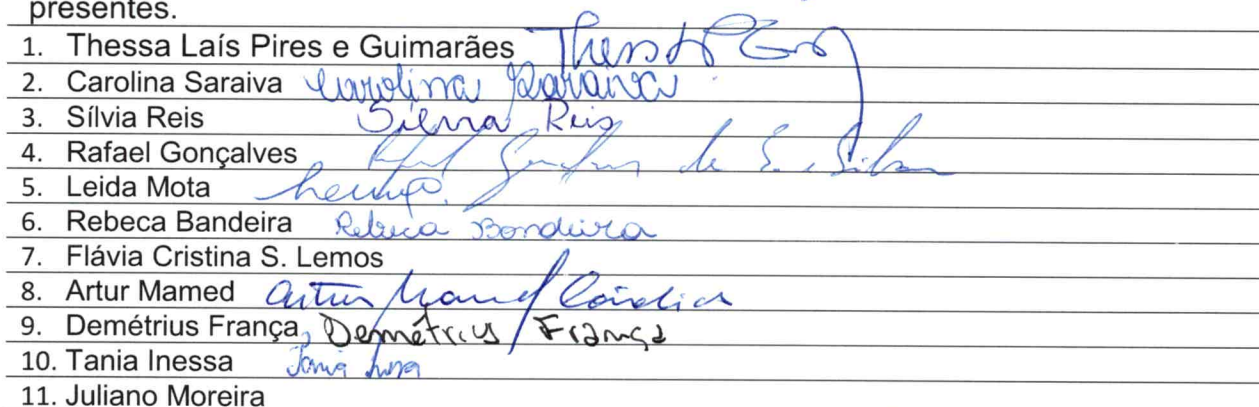 presentes.
1. Thessa Laís Pires e Guimarães
2. Carolina Saraiva Carolina Saraiva
3. Sílvia Reis Silvia Reis
4. Rafael Gonçalves
5. Leida Mota
6. Rebeca Bandeira Rebeca Bandeira
7. Flávia Cristina S. Lemos
8. Artur Mamed Artur Mamed
9. Demétrius França Demétrius França
10. Tania Inessa Tania Inessa
11. Juliano Moreira